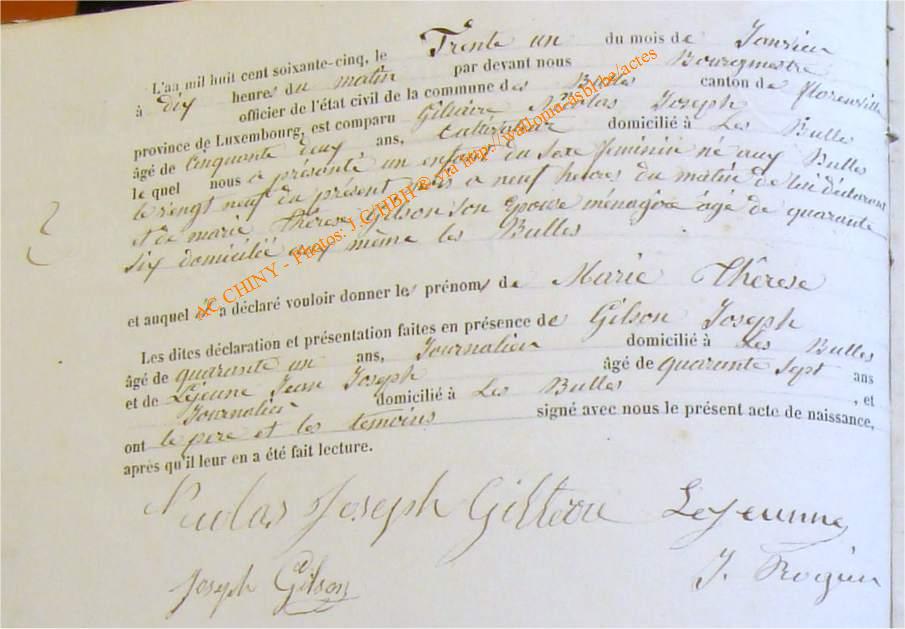 L'an mil huit cent soixante-cinq, le Trente un du mois de Janvier
à dix heures du matin par devant nous Bourgmestre
officier de l'état civil de la commune des Bulles canton de florenville
province de Luxembourg, est comparu Nicolas Joseph
âgé de Cinquante deux ans, domicilié à Les Bulles
le quel nous a présenté un enfant du sexe feminin né aux Bulles
le vingt neuf du présent mois a neuf heures du matin de lui déclarant
et de marie Thérese Gilson son épouse ménagère agé de quarante
six domiciliée aux même les Bulles
et auquel il a déclaré vouloir donner les prénoms de Marie Thérese
Les dites déclaration et présentation faites en présence de Gilson Joseph
âgé de quarante un ans, Journalier domicilié à Les Bulles
et de Lejeune Jean Joseph âgé de quarante sept ans
Journalier domicilié à Les Bulles , et
ont le pere et les temoins signé avec nous le présent acte de naissance,
après qu'il leur en a été fait lecture.
Nicolas Joseph Lejeunne
Joseph Gilson J.
AC CHINY - Photos: J.C/HBH ® via http://wallonia-asbl.be/actes